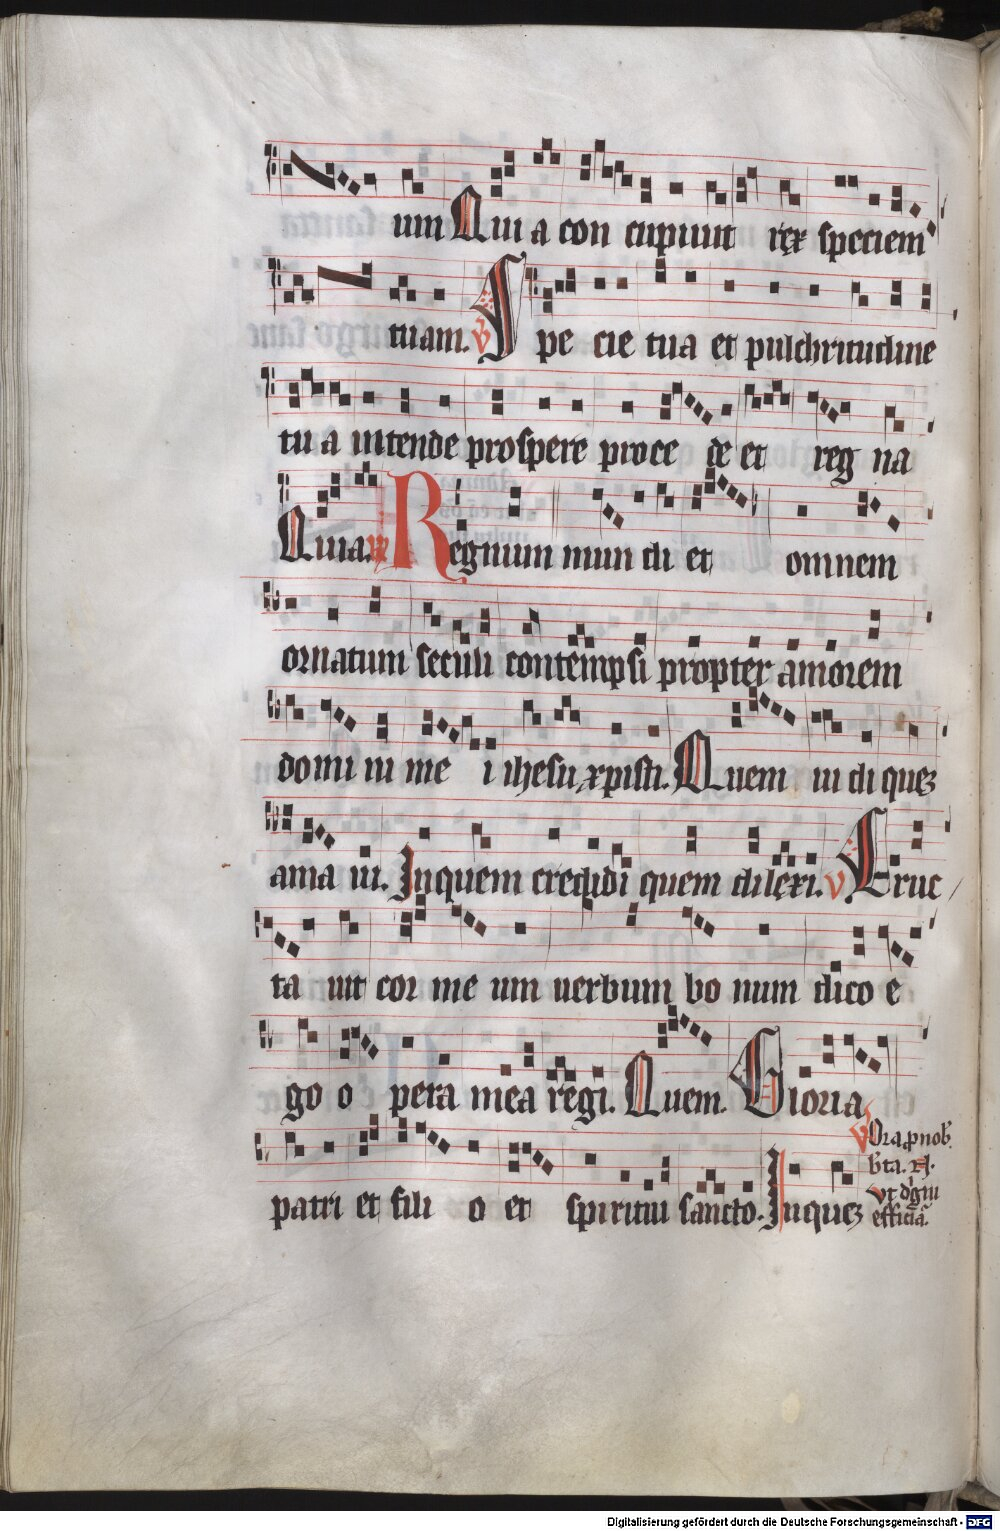 um Quia con cupiuit rex speciem
tuam. V Spe cie tua et pulchritudine
tu a intende prospere proce de et reg na
Quia. Regnum mun di et omnem
ornatum seculi contempsi propter amorem
domi ni me i ihesu xpisti. Quem ui di quez
ama ui. Inquem credidi quem dilexi. V Eruc
ta uit cor me um uerbum bo num dico e
go o pera mea regi. Quem. Gloria
patri et fili o et spiritui sancto. Inquez
V Ora p nob.
bta. N.
vt digni
efficia.
Digitalisierung gefördert durch die Deutsche Forschungsgemeinschaft - DFG